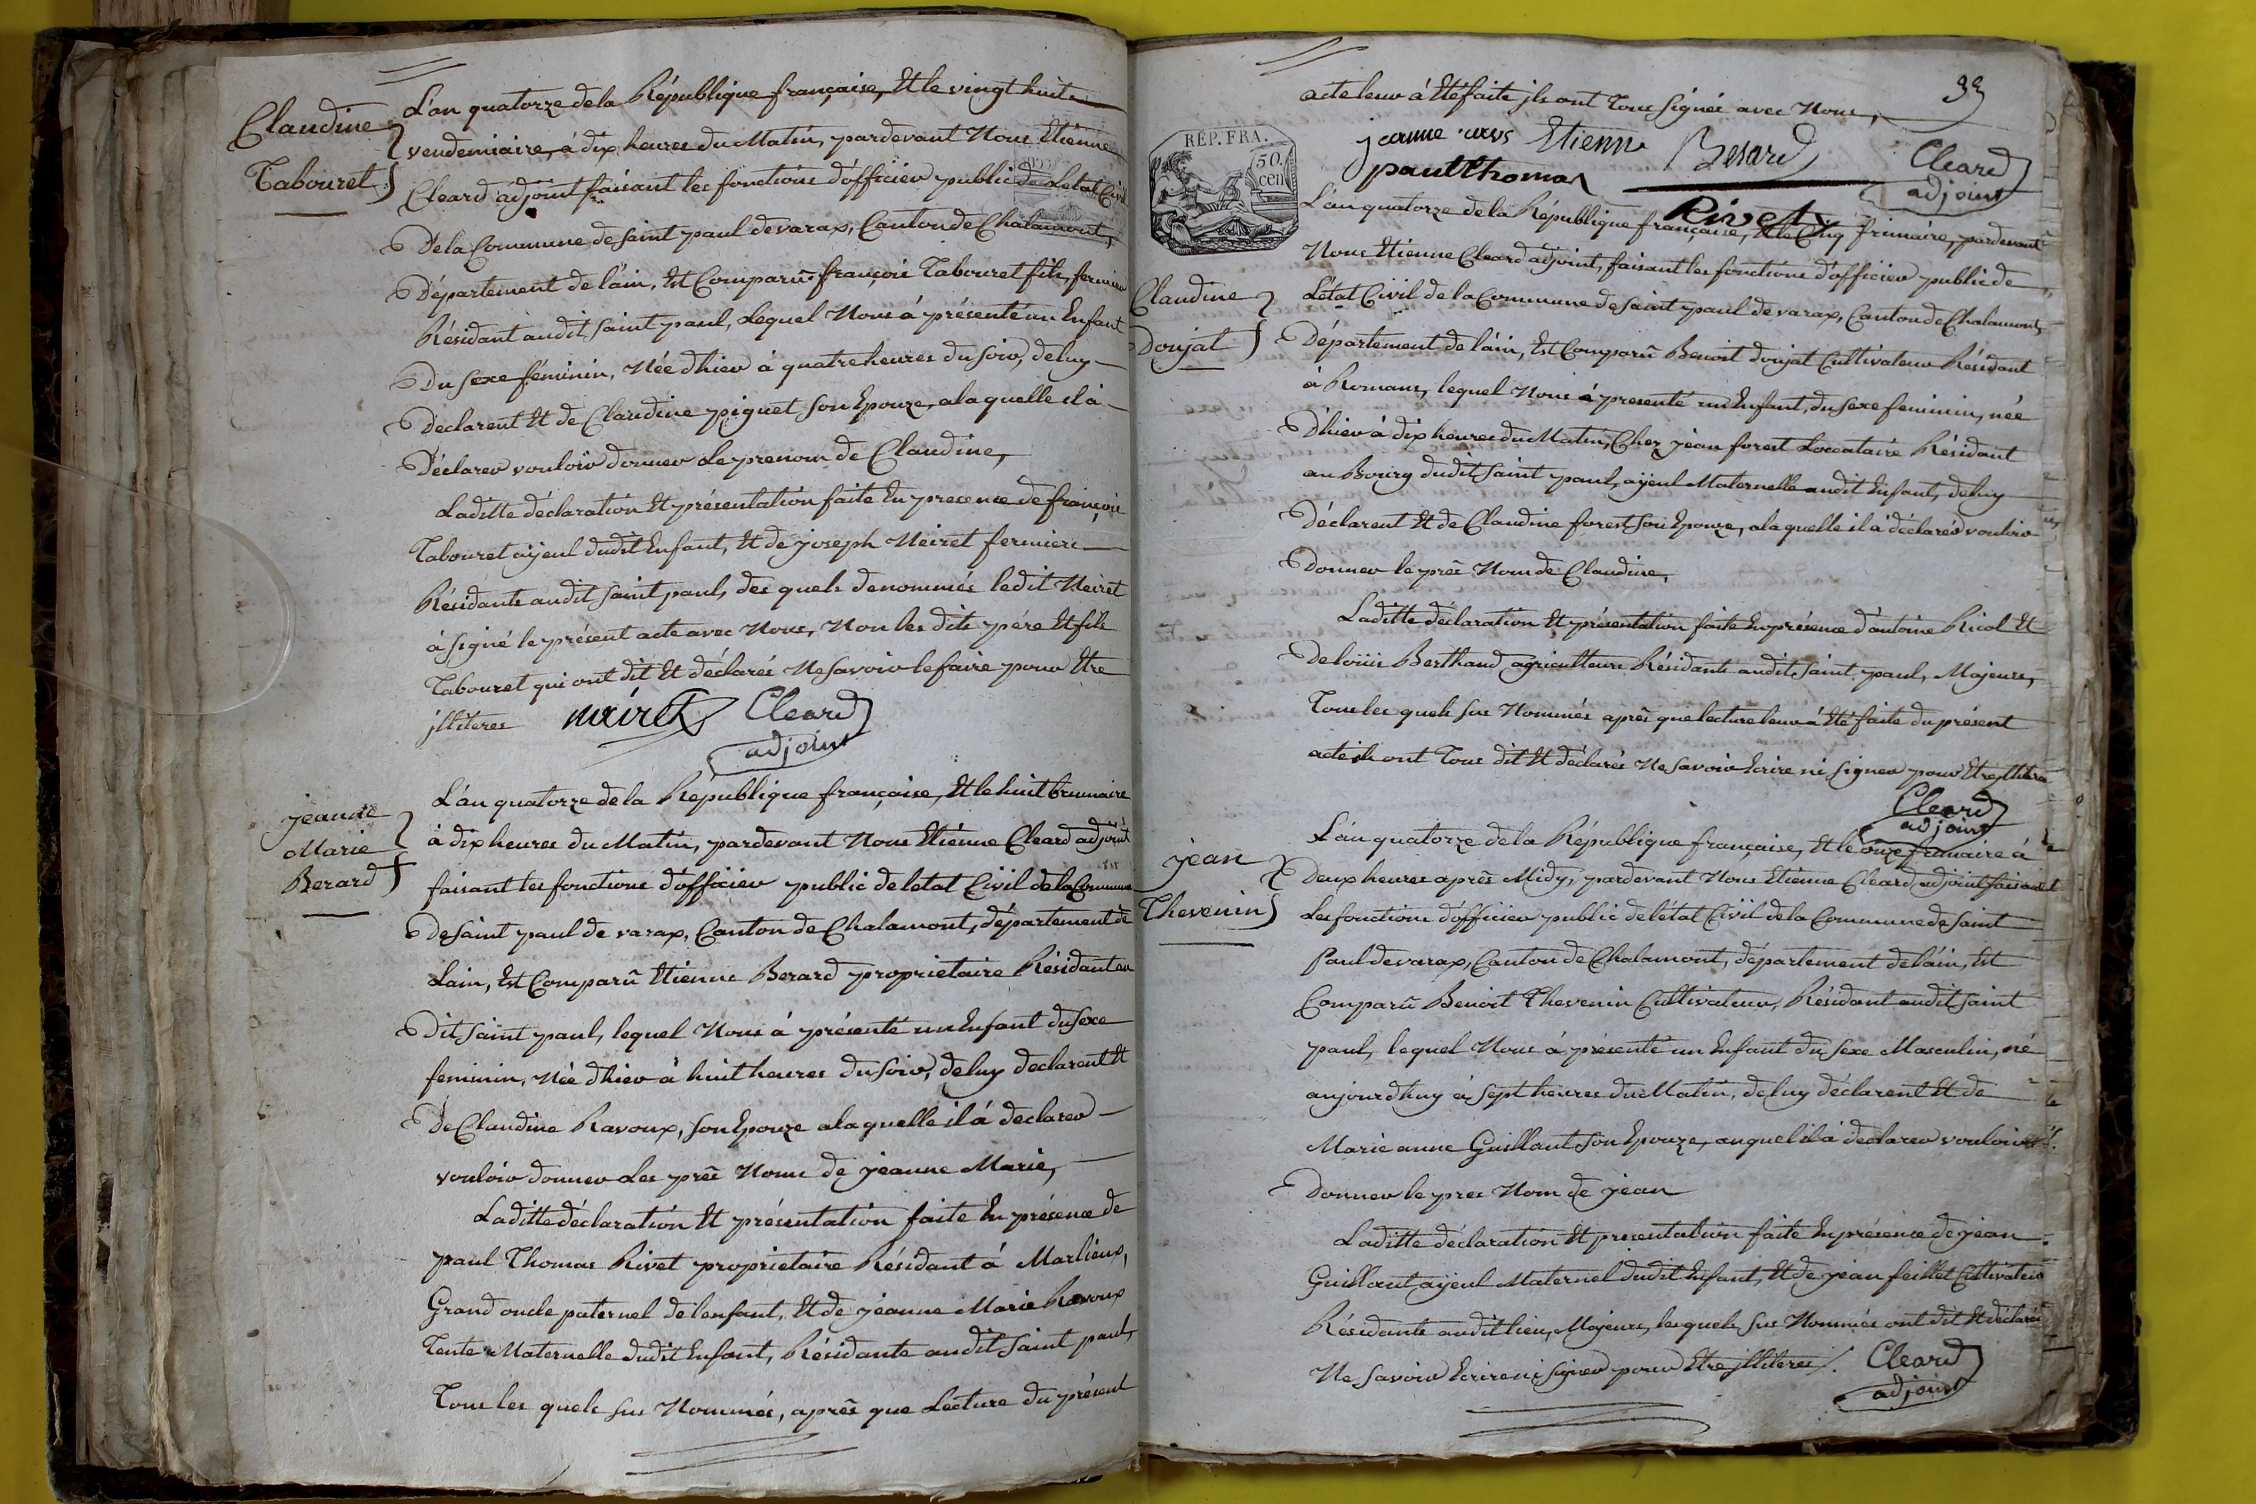 Claudine
Tabouret
L'an quatorze de la République française, Et le vingt huit
vendemiaire, à dix heures du Matin, pardevant Nous Etiénne
Cleard adjoint faisant les fonctions d'officier public de L'etat Civil
De la Commune de saint paul de varax, Canton de Chalamont,
Département de l'ain, Est Comparû françois Tabouret fils, fermier
Résidant audit saint paul, Lequel Nous à présenté un Enfant
Du sexe féminin, Née dhier à quatre heures du soir, de luy
Déclarent Et de Claudine piguet son Epouze, a la quelle il à
Déclarer vouloir donner Le prenom de Claudine,
Laditte déclaration Et présentation faite En presence de françois
Tabouret ayeul dudit Enfant, Et de joseph Neiret fermiers
Résidants audit saint paul, des quels denommés ledit Neiret
à signé le présent acte avec Nous, Non les dits père Et fils
Tabouret qui ont dit Et déclarés Ne savoir le faire pour Etre
jlliteres
neiret
Cleard
adjoint
jeanne
Marie
Berard
L'an quatorze de la République française, Et le huit brumaire
à dix heures du Matin, pardevant Nous Etiénne Cleard adjoint
faisant les fonctions d'officier public de letat Civil de la Commune
De saint paul de varax, Canton de Chalamont, département de
Lain, Est Comparû Etienne Berard proprietaire Résidant au
Dit saint paul, lequel Nous à présenté un Enfant du sexe
feminin, Née dhier à huit heures du soir, de luy declarent Et
De Claudine Ravoux, son Epouze a la quelle il à declarer
vouloir donner Les prês Noms de jeanne Marie,
Laditte déclaration Et présentation faite En présence de
paul Thomas Rivet proprietaire Résidant à Marlieux,
Grand oncle paternel de lenfant, Et de jeanne Marie Ravoux
Tente Maternelle dudit Enfant, Résidante audit saint paul,
Tous les quels sus Nommés, après que Lecture du présent
33
acte leur à Eté faite jls ont Tous signés avec Nous,
jeanne
Etienne
Berard
Cleard
adjoint
paul thomas
Rivet
REP. FRA.
50.
cen
Claudine
Donjat
L'an quatorze de la République française, Et le Cinq frimaire, pardevant
Nous Etienne Cleard adjoint, faisant les fonctions d'officier public de
L'état Civil de la Commune de saint paul de varax, Canton de Chalamont,
Département de l'ain, Est Comparû Benoit donjat Cultivateur Résidant
à Romans, lequel Nous à presenté un Enfant, du sexe feminin, née
D'hier à dix heures du Matin, Chez jean forest Loccataire Résidant
au Bourg dudit saint paul, ayeul Maternelle audit Enfant, de luy
Déclarent Et de Claudine forest son Epouze, a la quelle il à déclarés vouloir
Donner le prês Nom de Claudine,
Laditte déclaration Et présentation faite En présence d'antoine Ricol Et
De loüis Berthaud agriculteurs Résidants audit saint paul, Majeurs,
Tous les quels sus Nommés après que lecture leur à Eté faite du présent
acte ils ont Tous dit Et déclarés Ne savoir Ecrire ni signer pour Etre jllitérés
Cleard
adjoint
jean
Thevenin
L'an quatorze de la République française, Et le onze frimaire à
Deux heures après Midy, pardevant Nous Etienne Cleard adjoint faisant
Les fonctions d'officier public de l'état Civil de la Commune de saint
Paul de varax, Canton de Chalamont, département de l'ain, Est
Comparû Benoit Thevenin Cultivateur, Résidant audit saint
paul, lequel Nous à presenté un Enfant du sexe Masculin, né
aujourdhuy à sept heures du Matin, de luy déclarent Et de
Marie anne Guillaut son Epouze, auquel il à déclarer vouloir
Donner le pres Nom de jean
Laditte déclaration Et presentation faite En présence de jean
Guillaut ayeul Maternel dudit Enfant, Et de jean feillet Cultivateurs
Résidants audit lieu, Majeurs, les quels sus Nommés ont dit Et déclarés
Ne savoir Ecrire ni signer pour Etre jlliteres
Cleard
adjoint